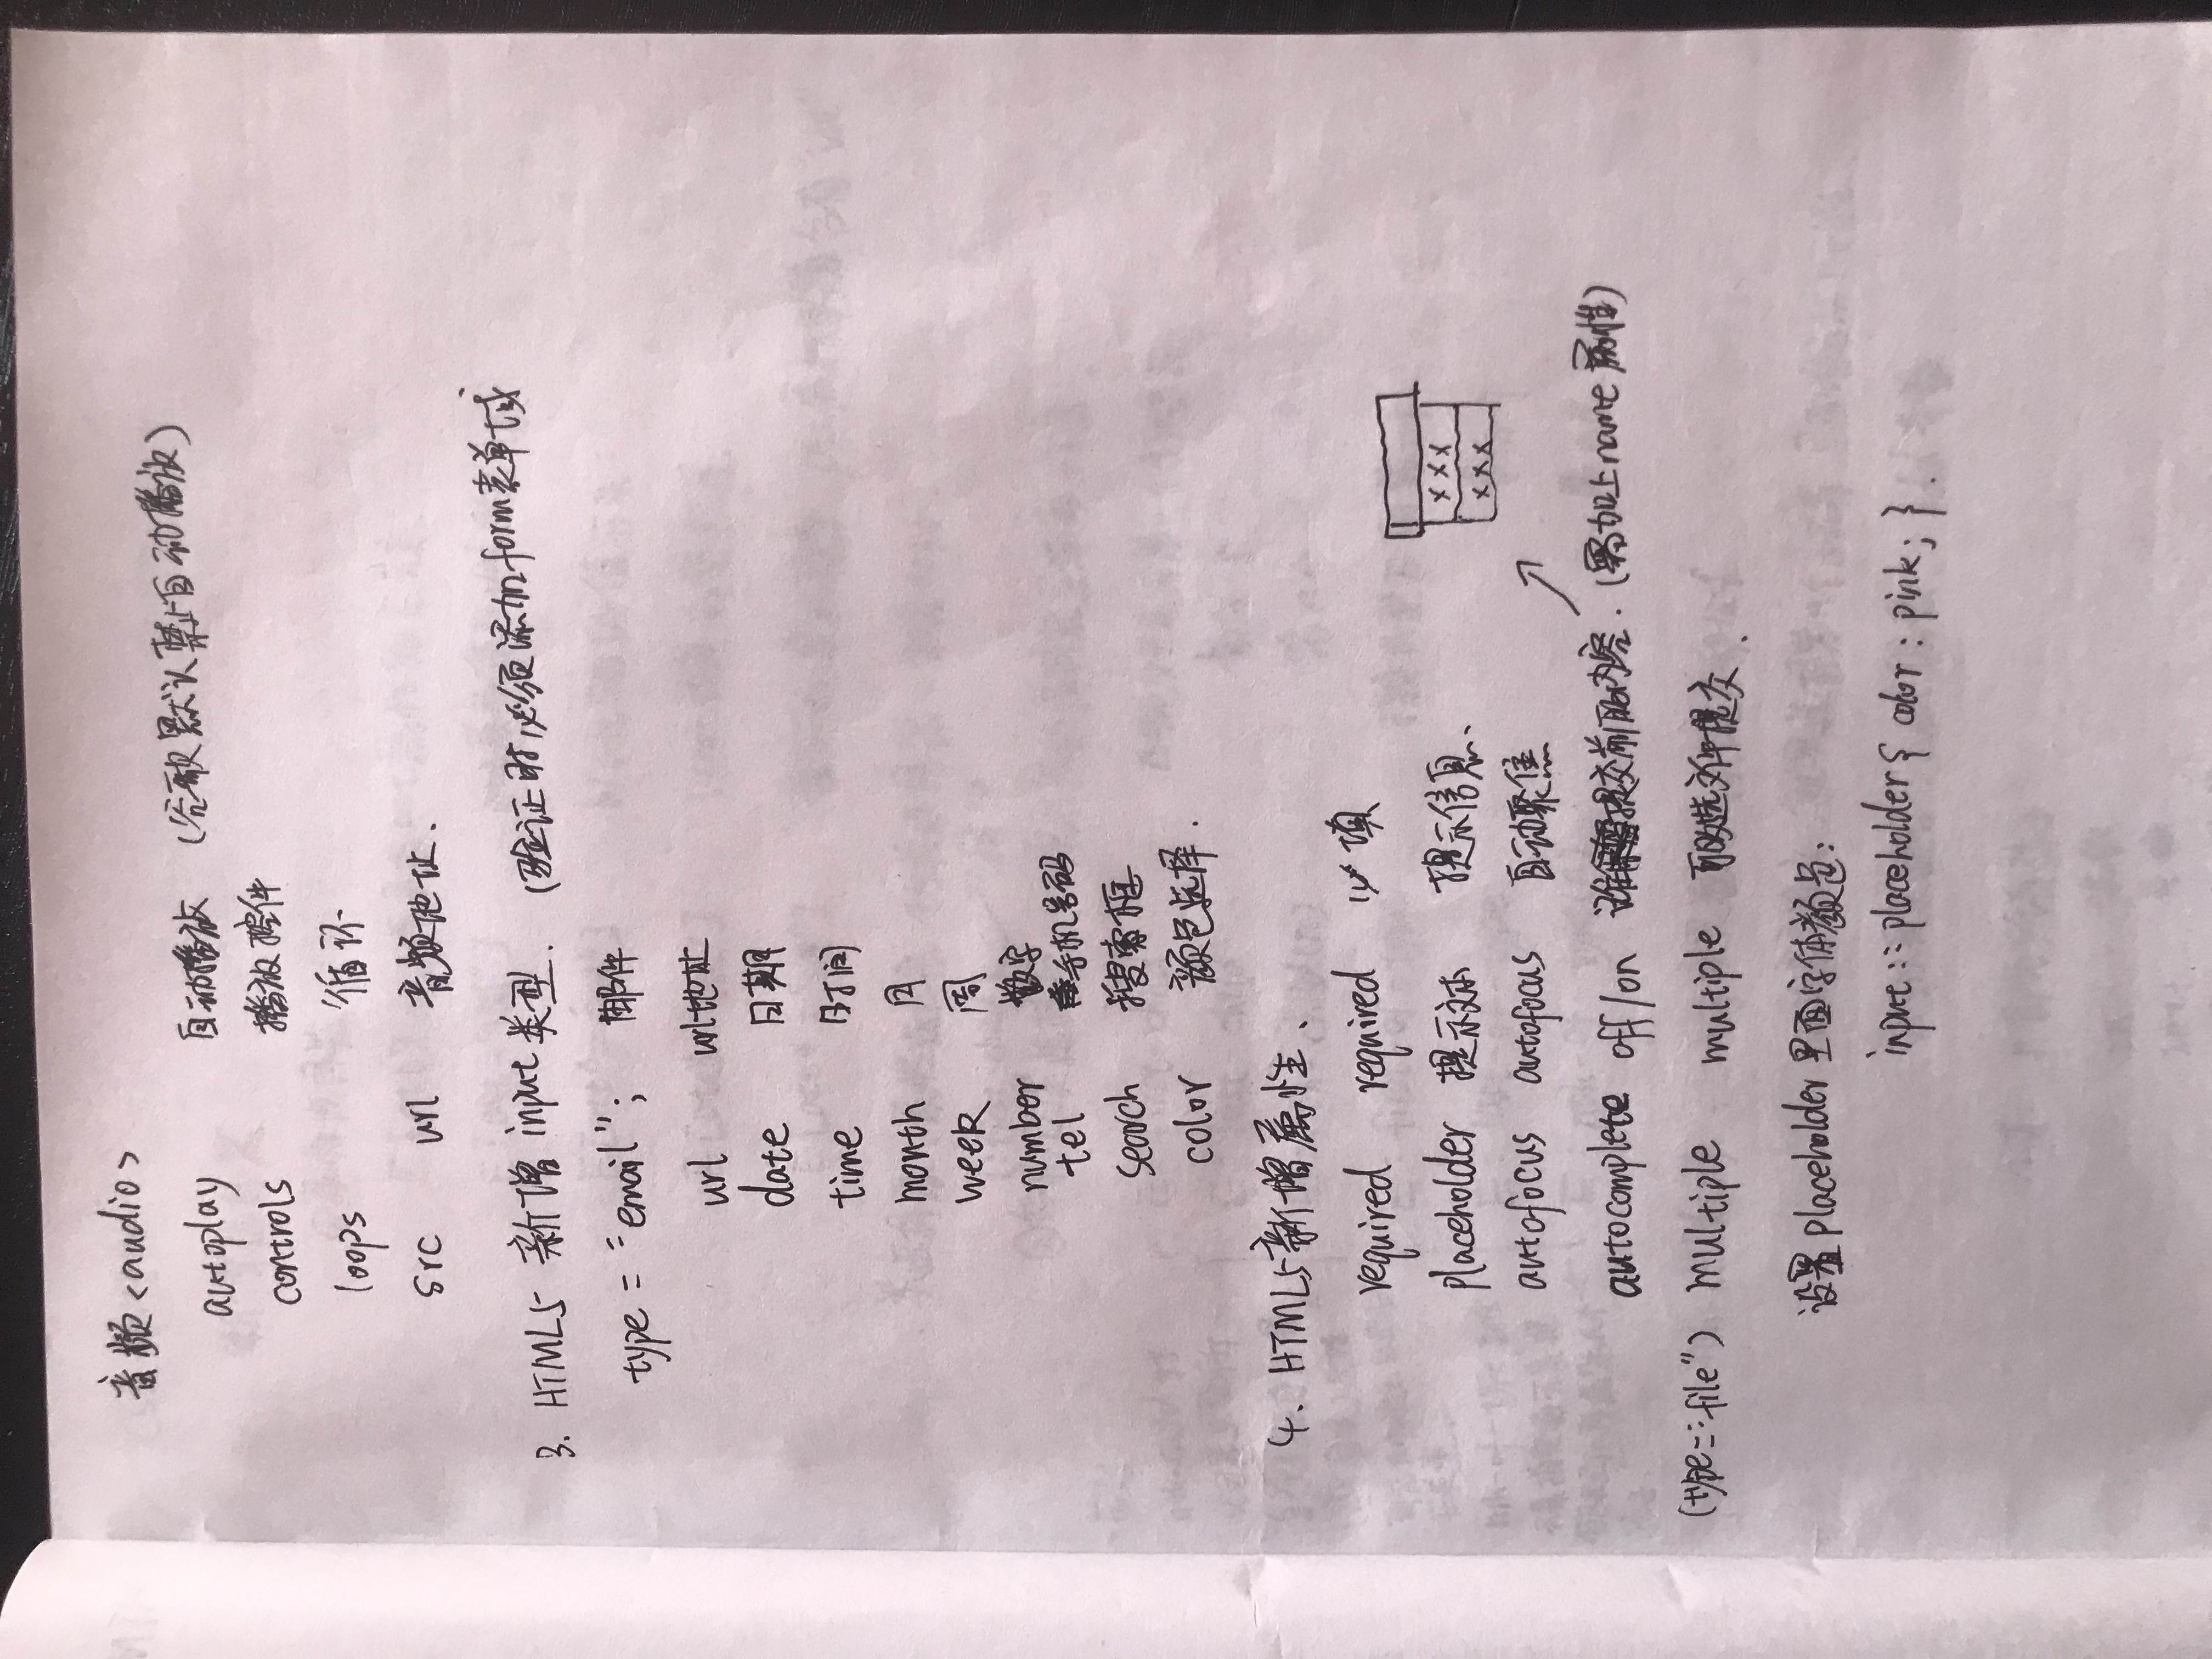 音频<audio>
autoplay 自动播放 (谷歌默认禁止自动播放)
controls 播放控件
loops 循环
src url 音频地址.
3. HTML5 新增 input 类型. (验证时必须添加form表单域
type = "email"; 邮件
url url地址
date 日期
time 时间
month 月
week 周
number 数字
tel 手机号码
search 搜索框
color 颜色选择.
4. HTML5新增属性.
required required 必填
placeholder 提示文本 提示信息.
xxx
xxx
autofocus autofocus 自动聚焦
autocomplete off/on 提交前的内容. (需加上name属性)
(type="file") multiple multiple 可多选文件提交.
设置placeholder里面字体颜色:
input::placeholder{ color: pink; }.